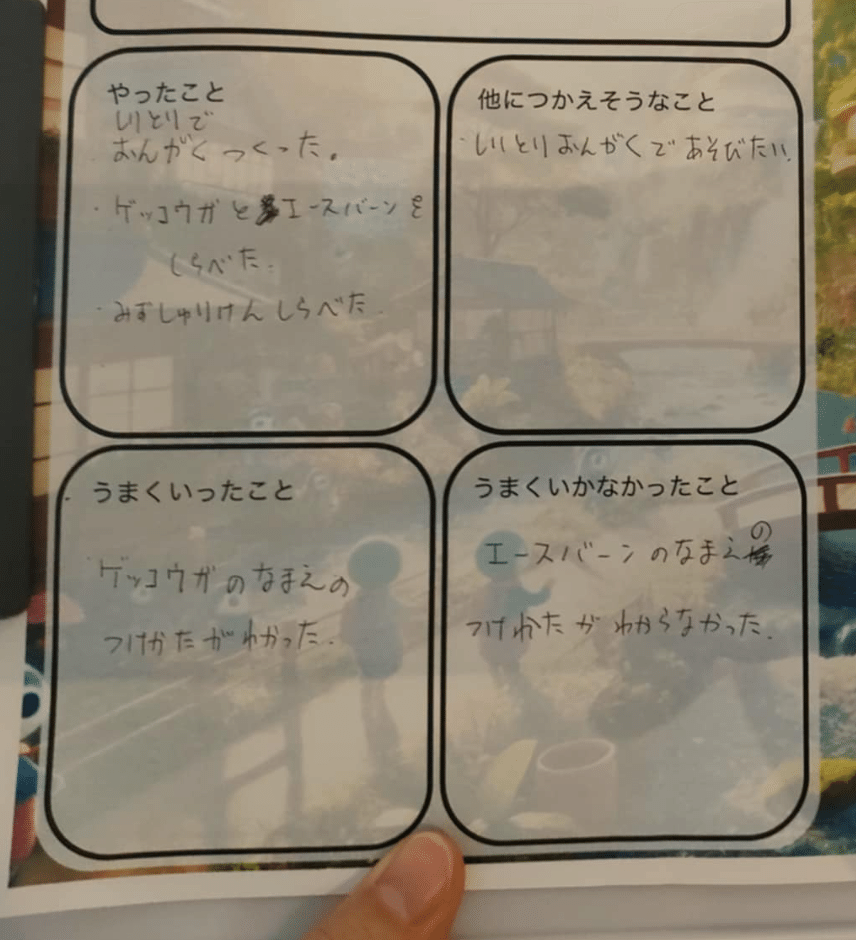 やったこと
しりとりで
おんがくつくった。
・ゲッコウガとエースバーンを
しらべた.
・みずしゅりけんしらべた.
他につかえそうなこと
・しりとりおんがくであそびたい.
うまくいったこと
・ゲッコウガのなまえの
つけかたがわかった.
うまくいかなかったこと
エースバーンのなまえの
つけかたがわからなかった.